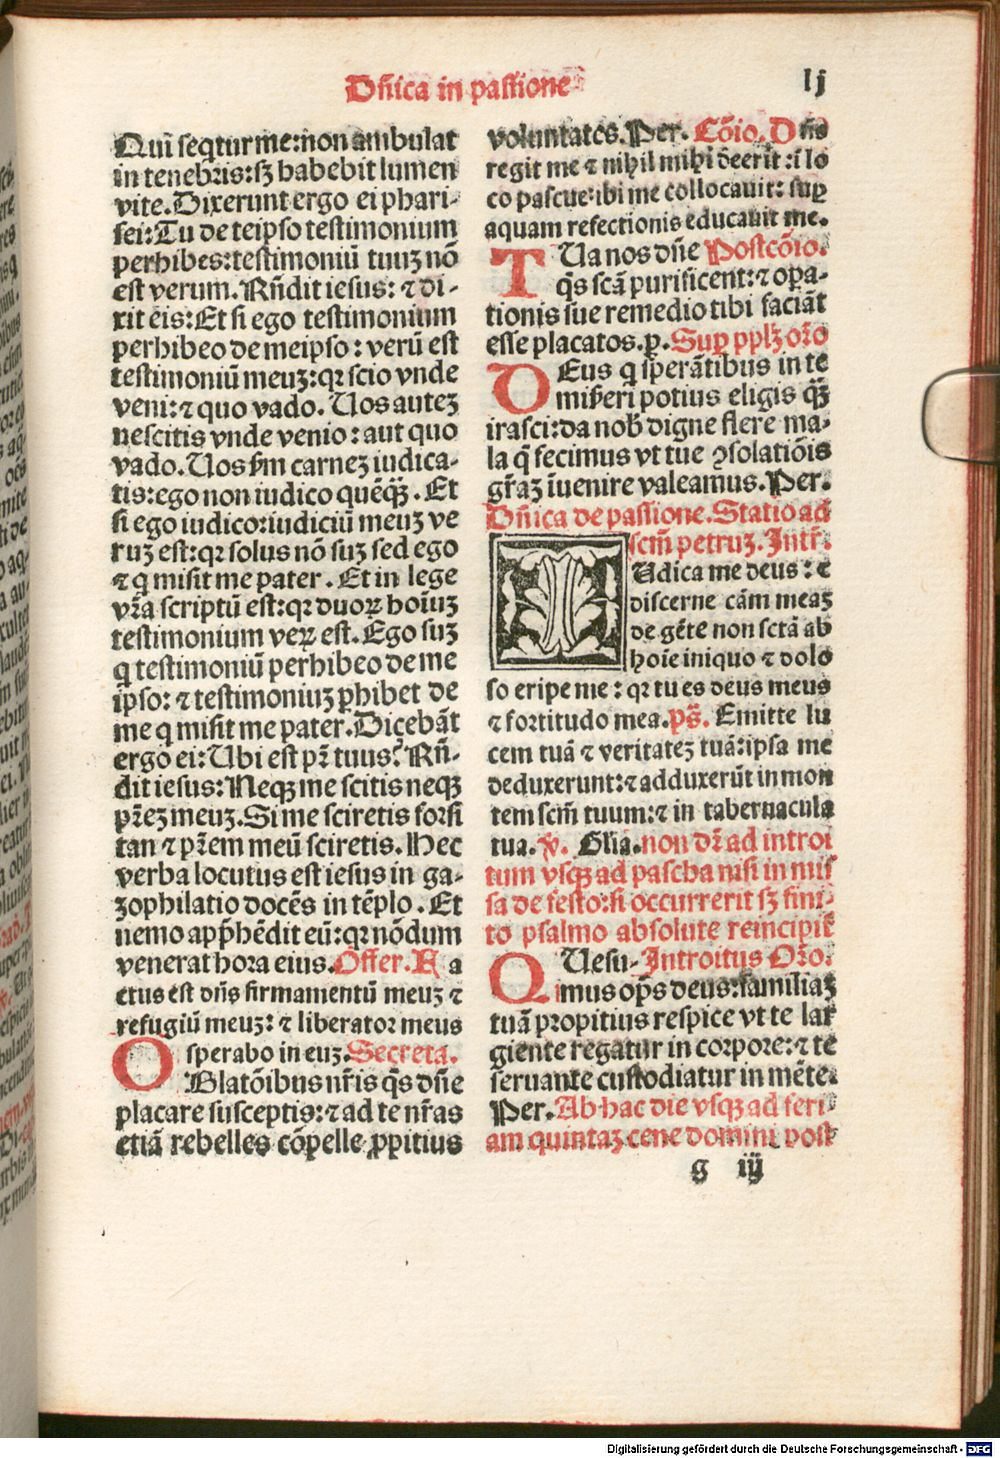 Dñica in passione
lj
Qui seq̄tur me: non ambulat
in tenebris: sꝫ habebit lumen
vite. Dixerunt ergo ei phari-
sei: Tu de teipso testimonium
perhibes: testimoniū tuuꝫ nō
est verum. Rñdit iesus: ⁊ di-
xit eis: Et si ego testimonium
perhibeo de meipso: verū est
testimoniū meuꝫ: qꝛ scio vnde
veni: ⁊ quo vado. Uos auteꝫ
nescitis vnde venio: aut quo
vado. Uos ẜm carneꝫ iudica-
tis: ego non iudico quēqꝫ̄. Et
si ego iudico: iudiciū meuꝫ ve
ruꝫ est: qꝛ solus nō suꝫ sed ego
⁊ q misit me pater. Et in lege
vr̄a scriptū est: qꝛ duoꝝ hoīuꝫ
testimonium veꝝ est. Ego suꝫ
q testimoniū perhibeo de me
ipso: ⁊ testimoniuꝫ ꝑhibet de
me q misit me pater. Dicebāt
ergo ei: Ubi est pr̄ tuus? Rñ-
dit iesus: Neqꝫ me scitis neqꝫ
pr̄eꝫ meuꝫ. Si me sciretis forsi
tan ⁊ pr̄em meū sciretis. Hec
verba locutus est iesus in ga-
zophilatio docēs in tēplo. Et
nemo app̄hēdit eū: qꝛ nōdum
venerat hora eius. Offer. F a
ctus est dñs firmamentū meuꝫ ⁊
refugiū meuꝫ: ⁊ liberator meus
sperabo in euꝫ. Secreta.
OBlatōibus nr̄is q̄s dñe
placare susceptis: ⁊ ad te nr̄as
etiā rebelles cōpelle ꝓpitius
voluntates. Per. Cōio. D ñs
regit me ⁊ nihil mihi deerit: ī lo
co pascue: ibi me collocauit: suꝑ
aquam refectionis educauit me.
TUa nos dñe Postcōio.
q̄s scā purificent: ⁊ oꝑa-
tionis sue remedio tibi faciāt
esse placatos. ꝑ. Suꝑ pplꝫ oꝛo
DEus q sperātibus in te
misẽri potius eligis qꝫ̄
irasci: da nob̄ digne flere ma-
la q̄ fecimus vt tue ꝯsolatiōis
gr̄aꝫ īuenire valeamus. Per.
Dñica de passione. Statio ad
scm̄ petruꝫ. Intr̄.
IUdica me deus: ⁊
discerne cām meaꝫ
de gēte non sctā ab
hoīe iniquo ⁊ dolo
so eripe me: qꝛ tu es deus meus
⁊ fortitudo mea. ps̄. Emitte lu
cem tuā ⁊ veritateꝫ tuā: ipsa me
deduxerunt: ⁊ adduxerūt in mon
tem scm̄ tuum: ⁊ in tabernacula
tua. ℣. Glia. non dr̄ ad introi
tum vsqꝫ ad pascha nisi in mis
sa de festo: si occurrerit sꝫ fini-
to psalmo absolute reincipit̄
QUesu- Introitus Oꝛo.
mus op̄s deus: familiaꝫ
tuā propitius respice vt te lar
giente regatur in corpore: ⁊ te
seruante custodiatur in mēte.
Per. Ab hac die vsqꝫ ad feri-
am quintaꝫ cene domini post
g iij
Digitalisierung gefördert durch die Deutsche Forschungsgemeinschaft - DFG